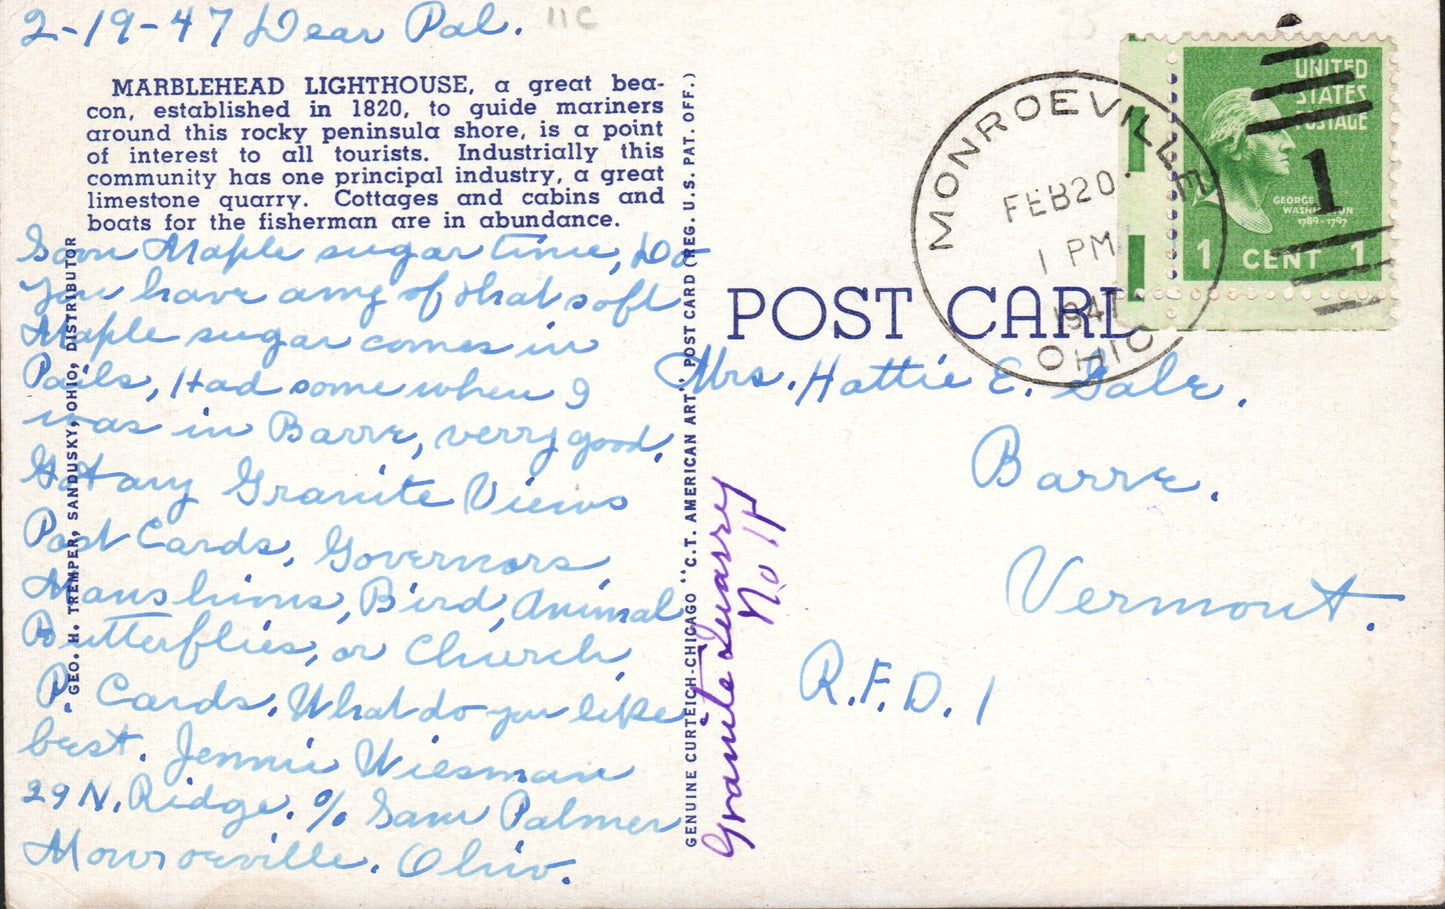 2-19-47 Dear Pal.
11C
MARBLEHEAD LIGHTHOUSE, a great bea-
con, established in 1820, to guide mariners
around this rocky peninsula shore, is a point
of interest to all tourists. Industrially this
community has one principal industry, a great
limestone quarry. Cottages and cabins and
boats for the fisherman are in abundance.
Soon Maple sugar time, Do
you have any of that soft
Maple sugar comes in
Pails, Had some when I
was in Barre, verry good.
Got any Granite Views
Post Cards, Governors,
Manshions, Bird, Animal
Butterflies, or Church,
P. Cards. What do you like
best. Jennie Wiesman
29 N. Ridge. % Sam Palmer
Monroeville. Ohio.
GEO. H. TREMPER, SANDUSKY, OHIO, DISTRIBUTOR
GENUINE CURTEICH-CHICAGO "C.T. AMERICAN ART" POST CARD (REG. U.S. PAT. OFF.)
Granite Quarry
No 14
POST CARD
MONROEVILLE
FEB 20
1 PM
1947
OHIO
UNITED
STATES
POSTAGE
1
GEORGE
WASHINGTON
1789-1797
1 CENT 1
Mrs. Hattie E. Gale.
Barre.
Vermont.
R.F.D. 1